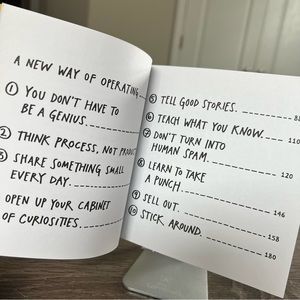 A NEW WAY OF OPERATING
① YOU DON'T HAVE TO
BE A GENIUS.
② THINK PROCESS, NOT PRODUCT
③ SHARE SOMETHING SMALL
EVERY DAY.
OPEN UP YOUR CABINET
OF CURIOSITIES.
⑤ TELL GOOD STORIES.
⑥ TEACH WHAT YOU KNOW. 110
⑦ DON'T TURN INTO
HUMAN SPAM. 120
⑧ LEARN TO TAKE
A PUNCH. 146
⑨ SELL OUT. 158
⑩ STICK AROUND. 180